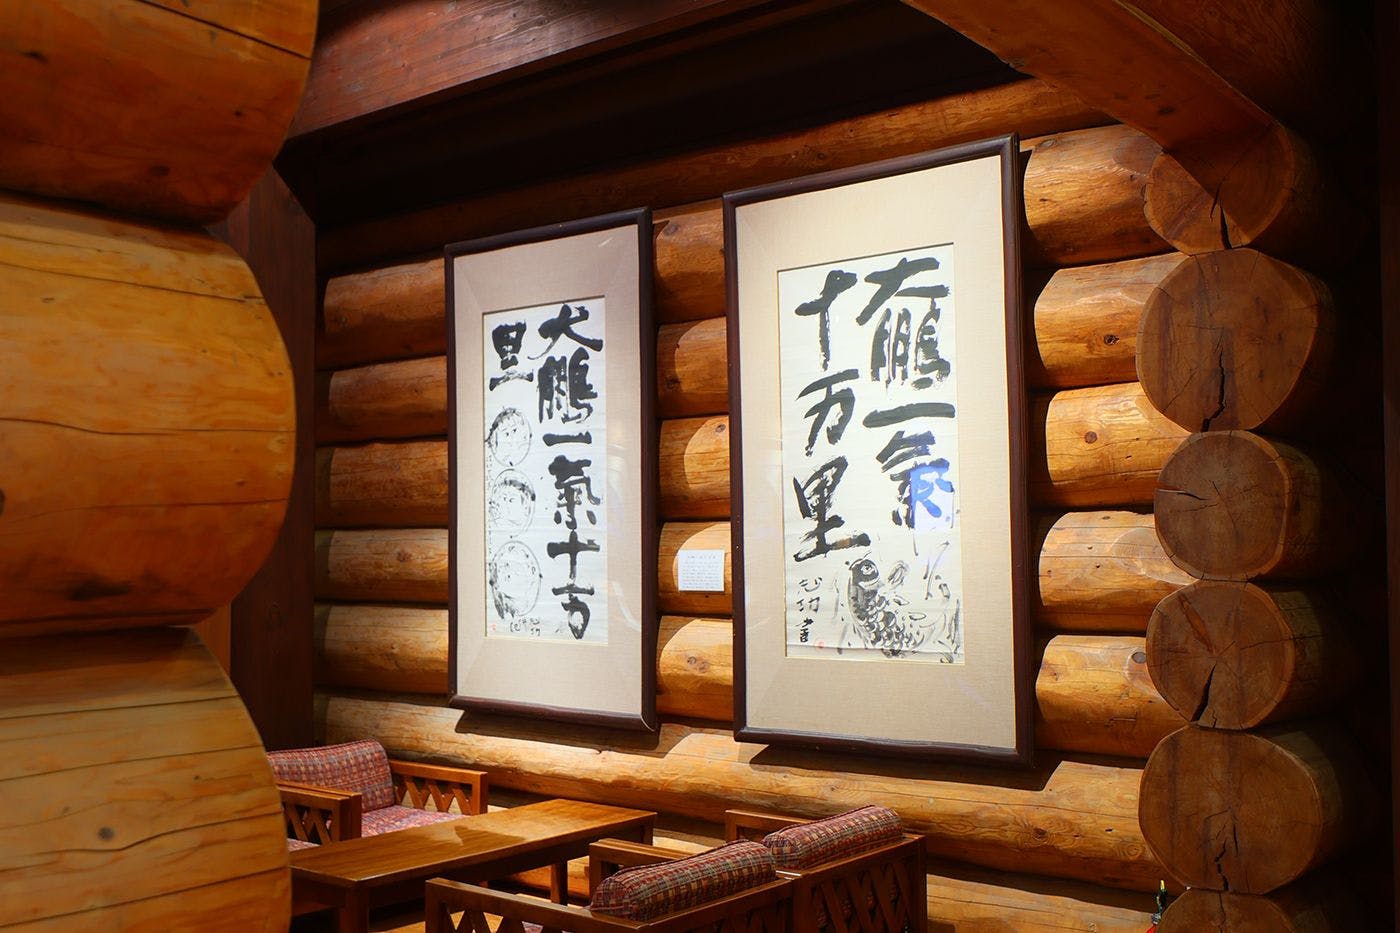 大鵬一氣
十万里
志功書
大鵬一氣十万
里